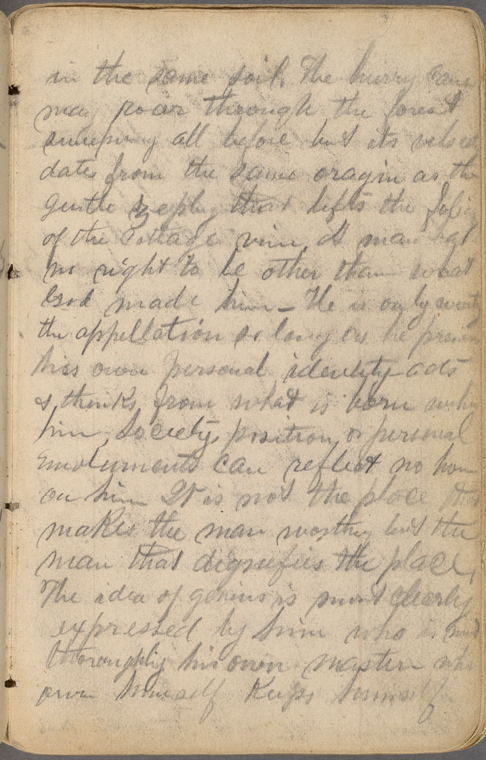 in the same soil. The hurry cane
may roar through the forest
sweeping all before but its
dates from the same oragin as the
gentle zephy that lifts the
of the cottage vine. A man has
no right to be other than what
God made him – He is only
the appellation so long as he
his own personal identity acts
& thinks from what is born
him, Society, position, or personal
Emoluments can reflect no
on him It is not the place
makes the man worthy but the
man that dignifies the place,
The idea of genius is most clearly
expressed by him who is
thoroughly his own master
own himself Keeps himself